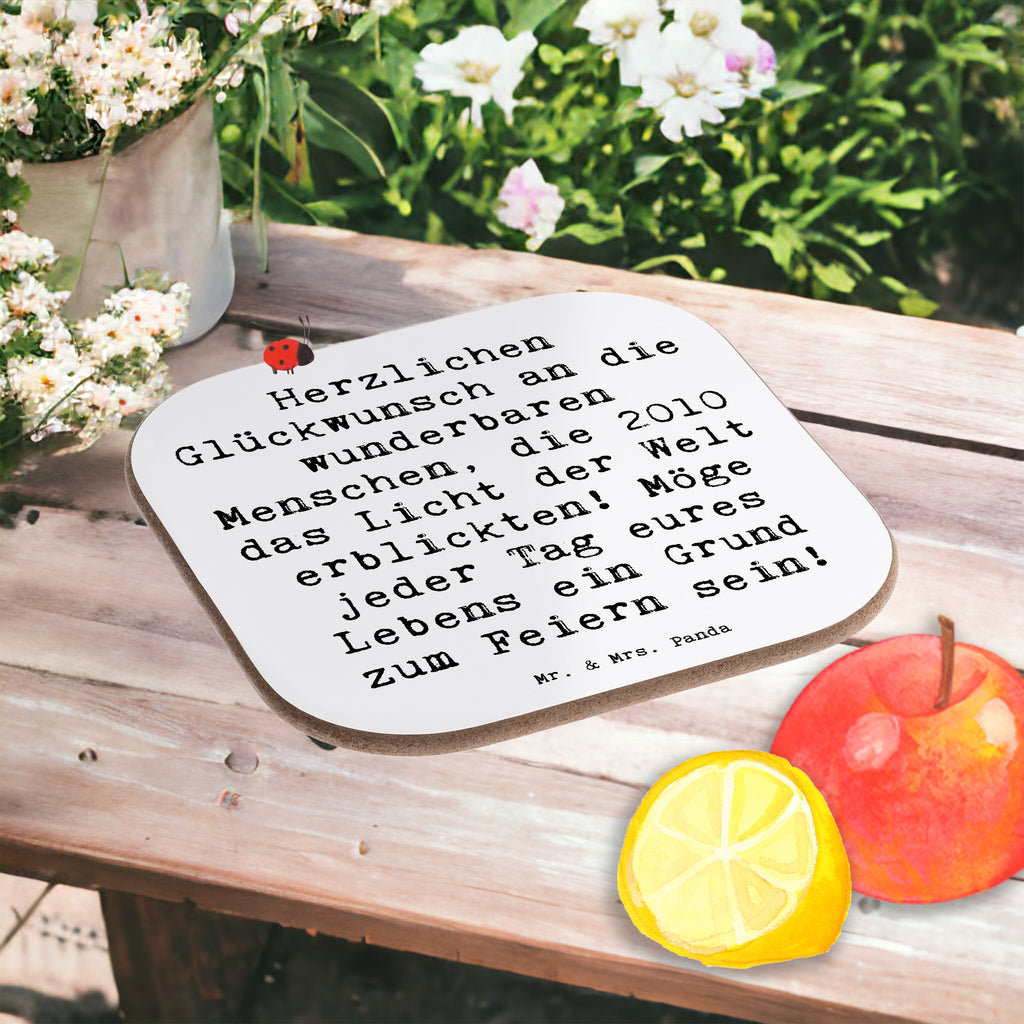 Herzlichen
Glückwunsch an die
wunderbaren
Menschen, die 2010
das Licht der Welt
erblickten! Möge
jeder Tag eures
Lebens ein Grund
zum Feiern sein!
Mr. & Mrs. Panda